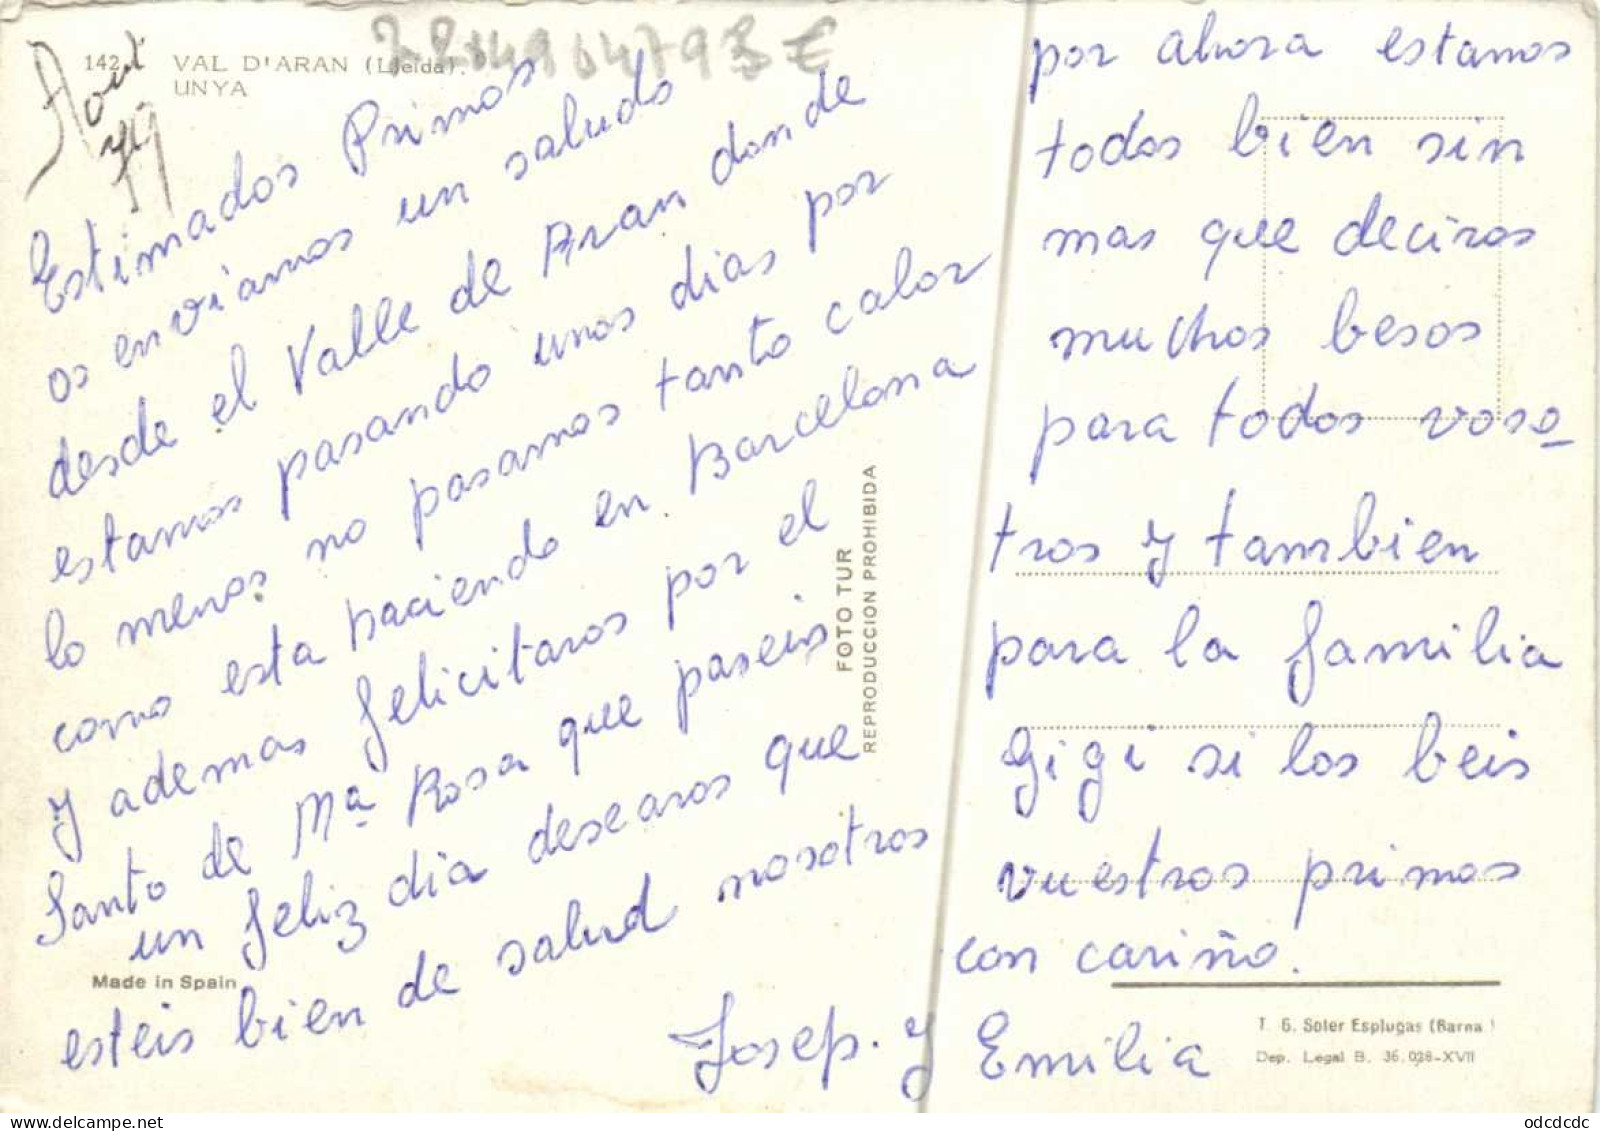 142
VAL D'ARAN (Lleida).
UNYA
Aout
79
Estimados Primos
os enviamos un saludo
desde el Valle de Aran donde
estamos pasando unos dias por
lo menos no pasamos tanto calor
como esta haciendo en Barcelona
y ademas felicitaros por el
Santo de Mª Rosa que paseis
un feliz dia desearos que
esteis bien de salud nosotros
por ahora estamos
todos bien sin
mas que deciros
muchos besos
para todos voso
tros y tambien
para la familia
Gigi si los beis
vuestros primos
con cariño.
Josep. y Emilia
FOTO TUR
REPRODUCCION PROHIBIDA
Made in Spain
T. G. Soler Esplugas (Barna)
Dep. Legal B. 36.028-XVII
odcdcdc